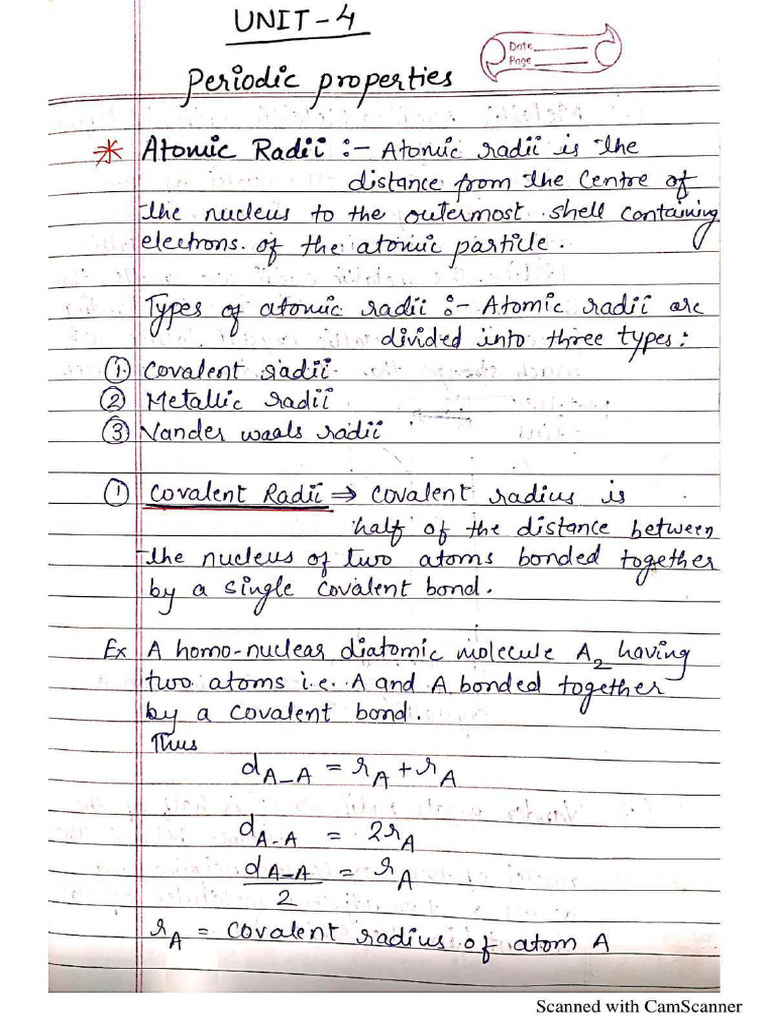 UNIT-4
Date
Page
Periodic properties
* Atomic Radii :- Atomic radii is the
distance from the centre of
the nucleus to the outermost shell containing
electrons. of the atomic particle.
Types of atomic radii :- Atomic radii are
divided into three types:
① Covalent radii.
② Metallic radii
③ Vander waals radii
① Covalent Radii ⇒ covalent radius is
half of the distance between
the nucleus of two atoms bonded together
by a single covalent bond.
Ex A homo-nuclear diatomic molecule A₂ having
two atoms i.e. A and A bonded together
by a covalent bond.
Thus
d_A-A = r_A + r_A
d_A-A = 2r_A
d_A-A / 2 = r_A
r_A = covalent radius of atom A
Scanned with CamScanner